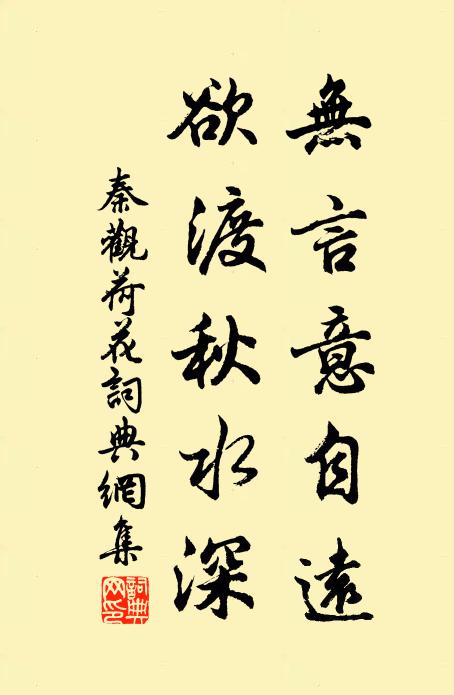 無言意自遠
欲渡秋水深
秦觀荷花詞典網集
詞典
网印